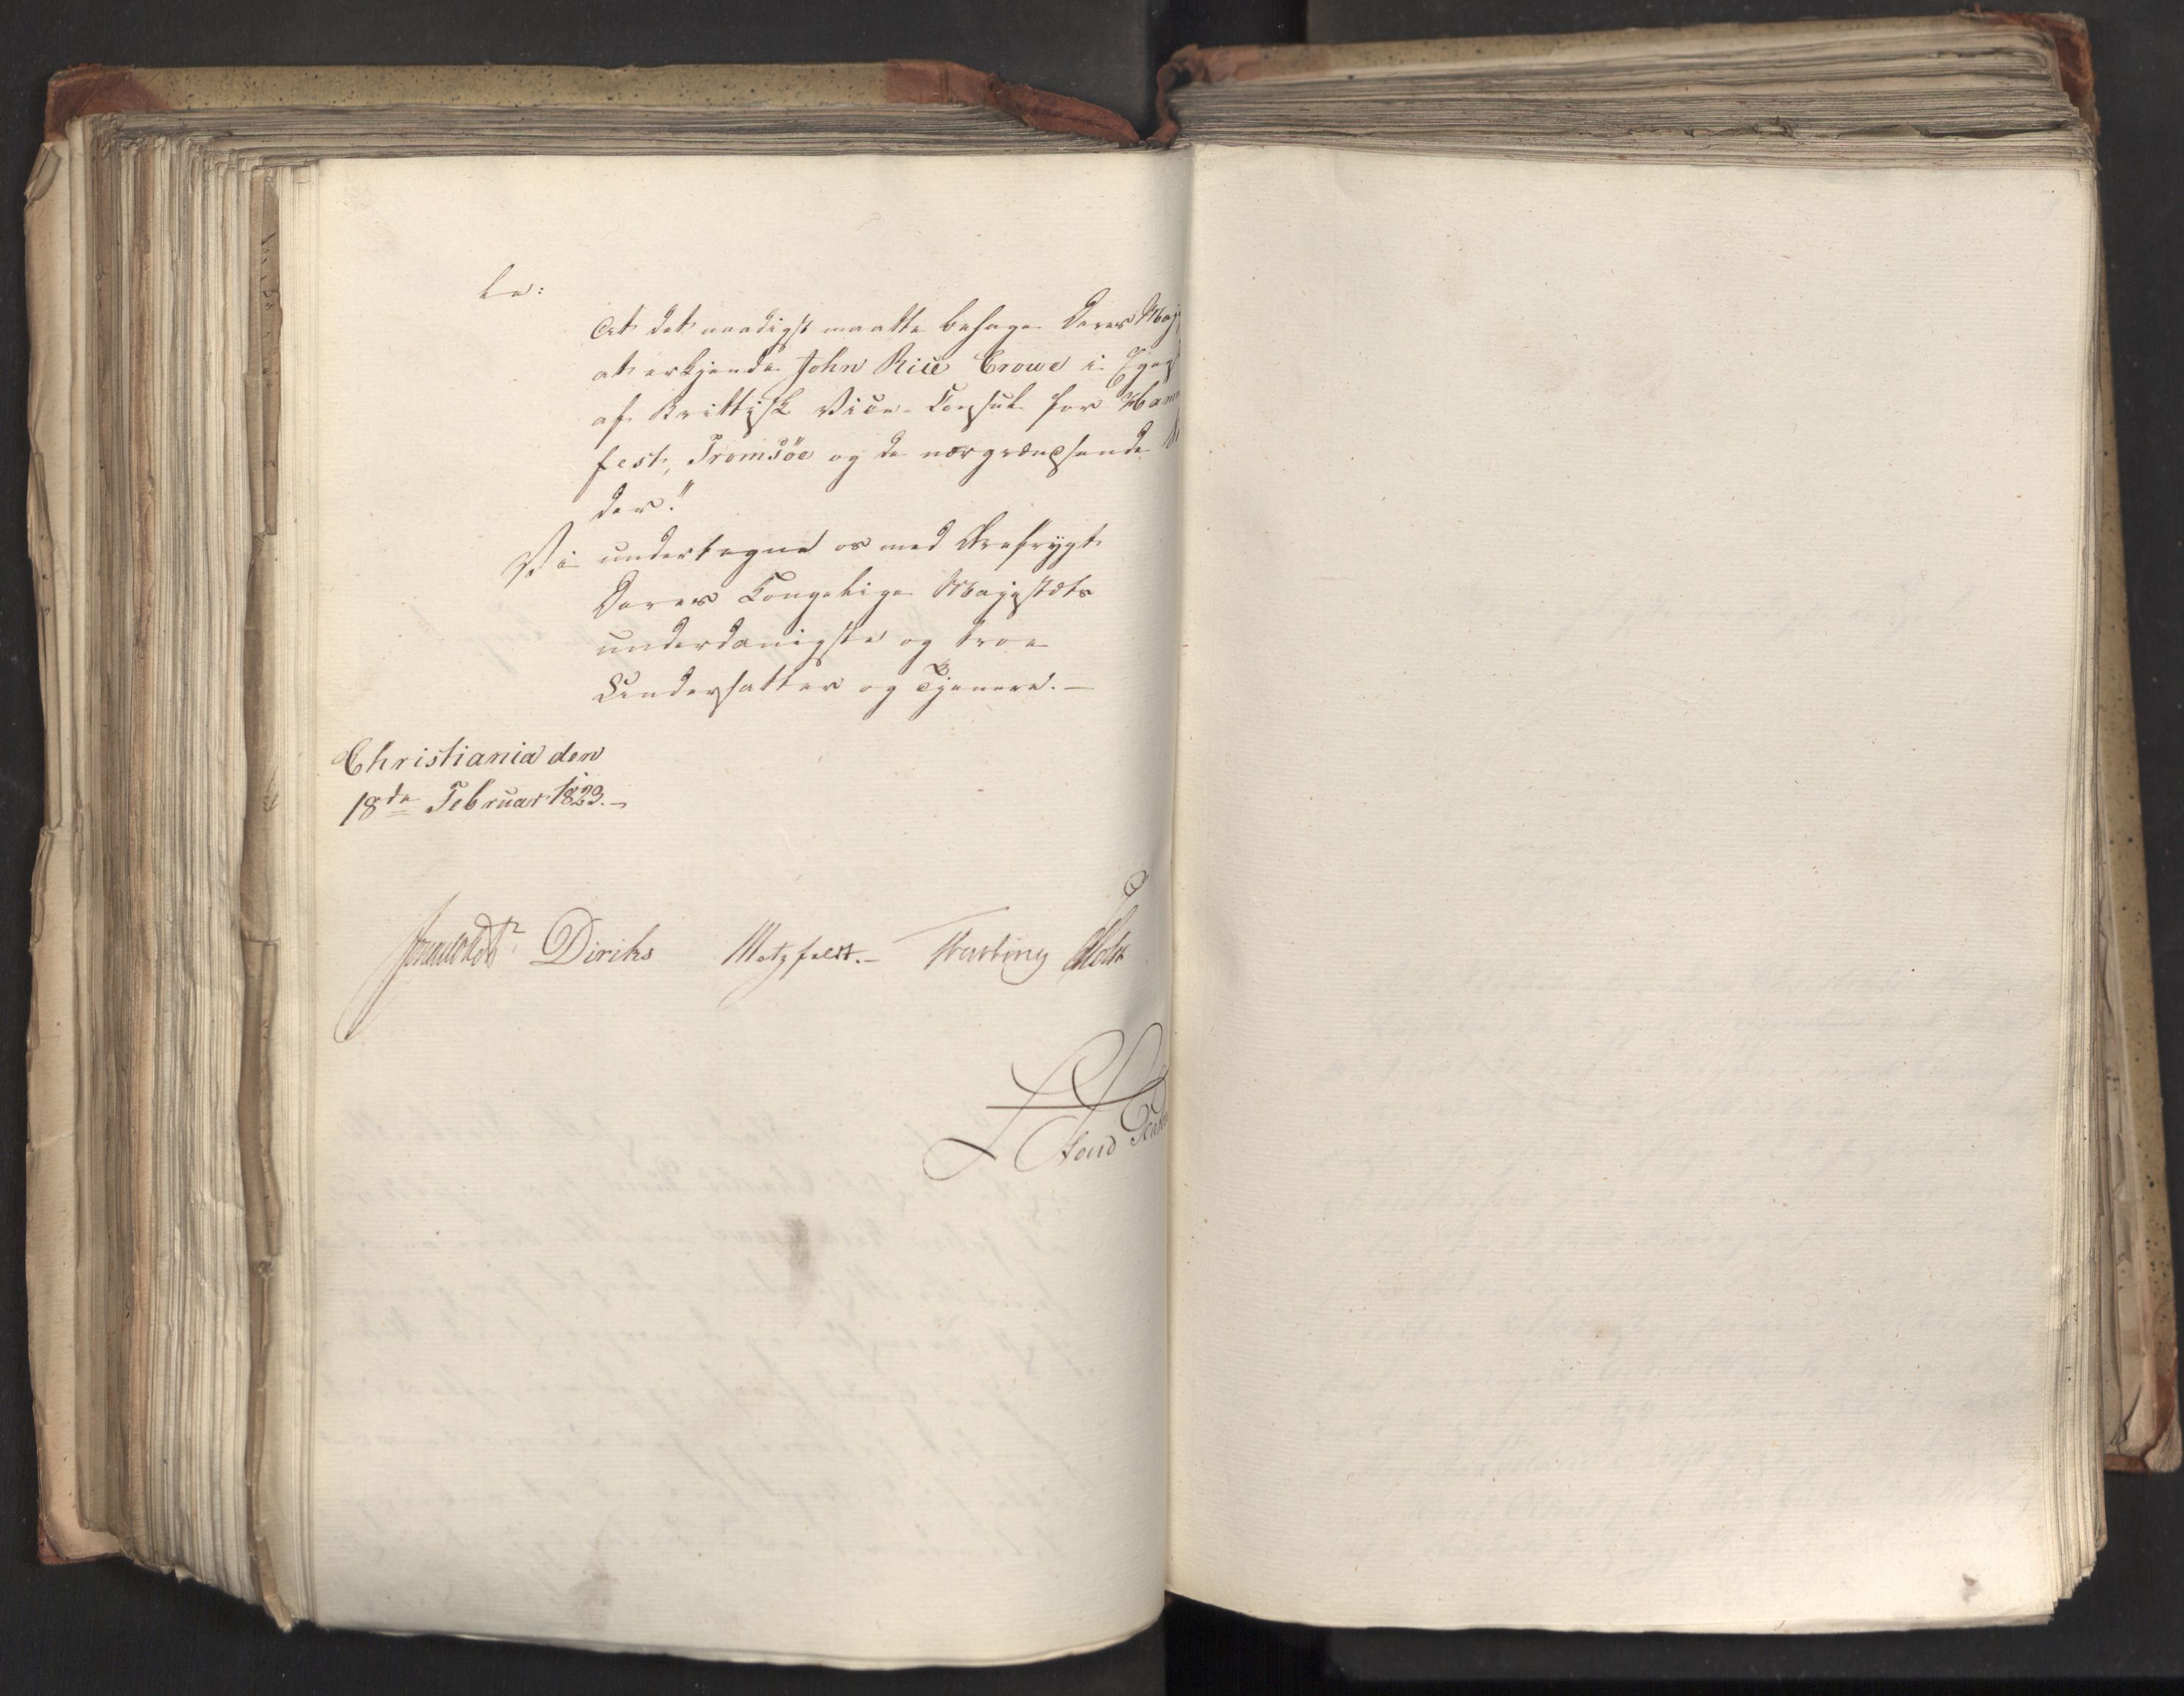 le:
At det naadigst maatte behage Deres Maj
at erkjende John Rice Crowe i Egeg
af Brittisk Vice-Consul for Ham
fest, Tromsöe og de nærgrændsende
der."
Vi undertegne os med Ærefrygt
Deres Kongelige Majestæts
underdanigste og troe
Undersatter og Tjenere.—
Christiania den
18de Februar 1823.—
Diriks Motzfeldt.— Krebting Holst